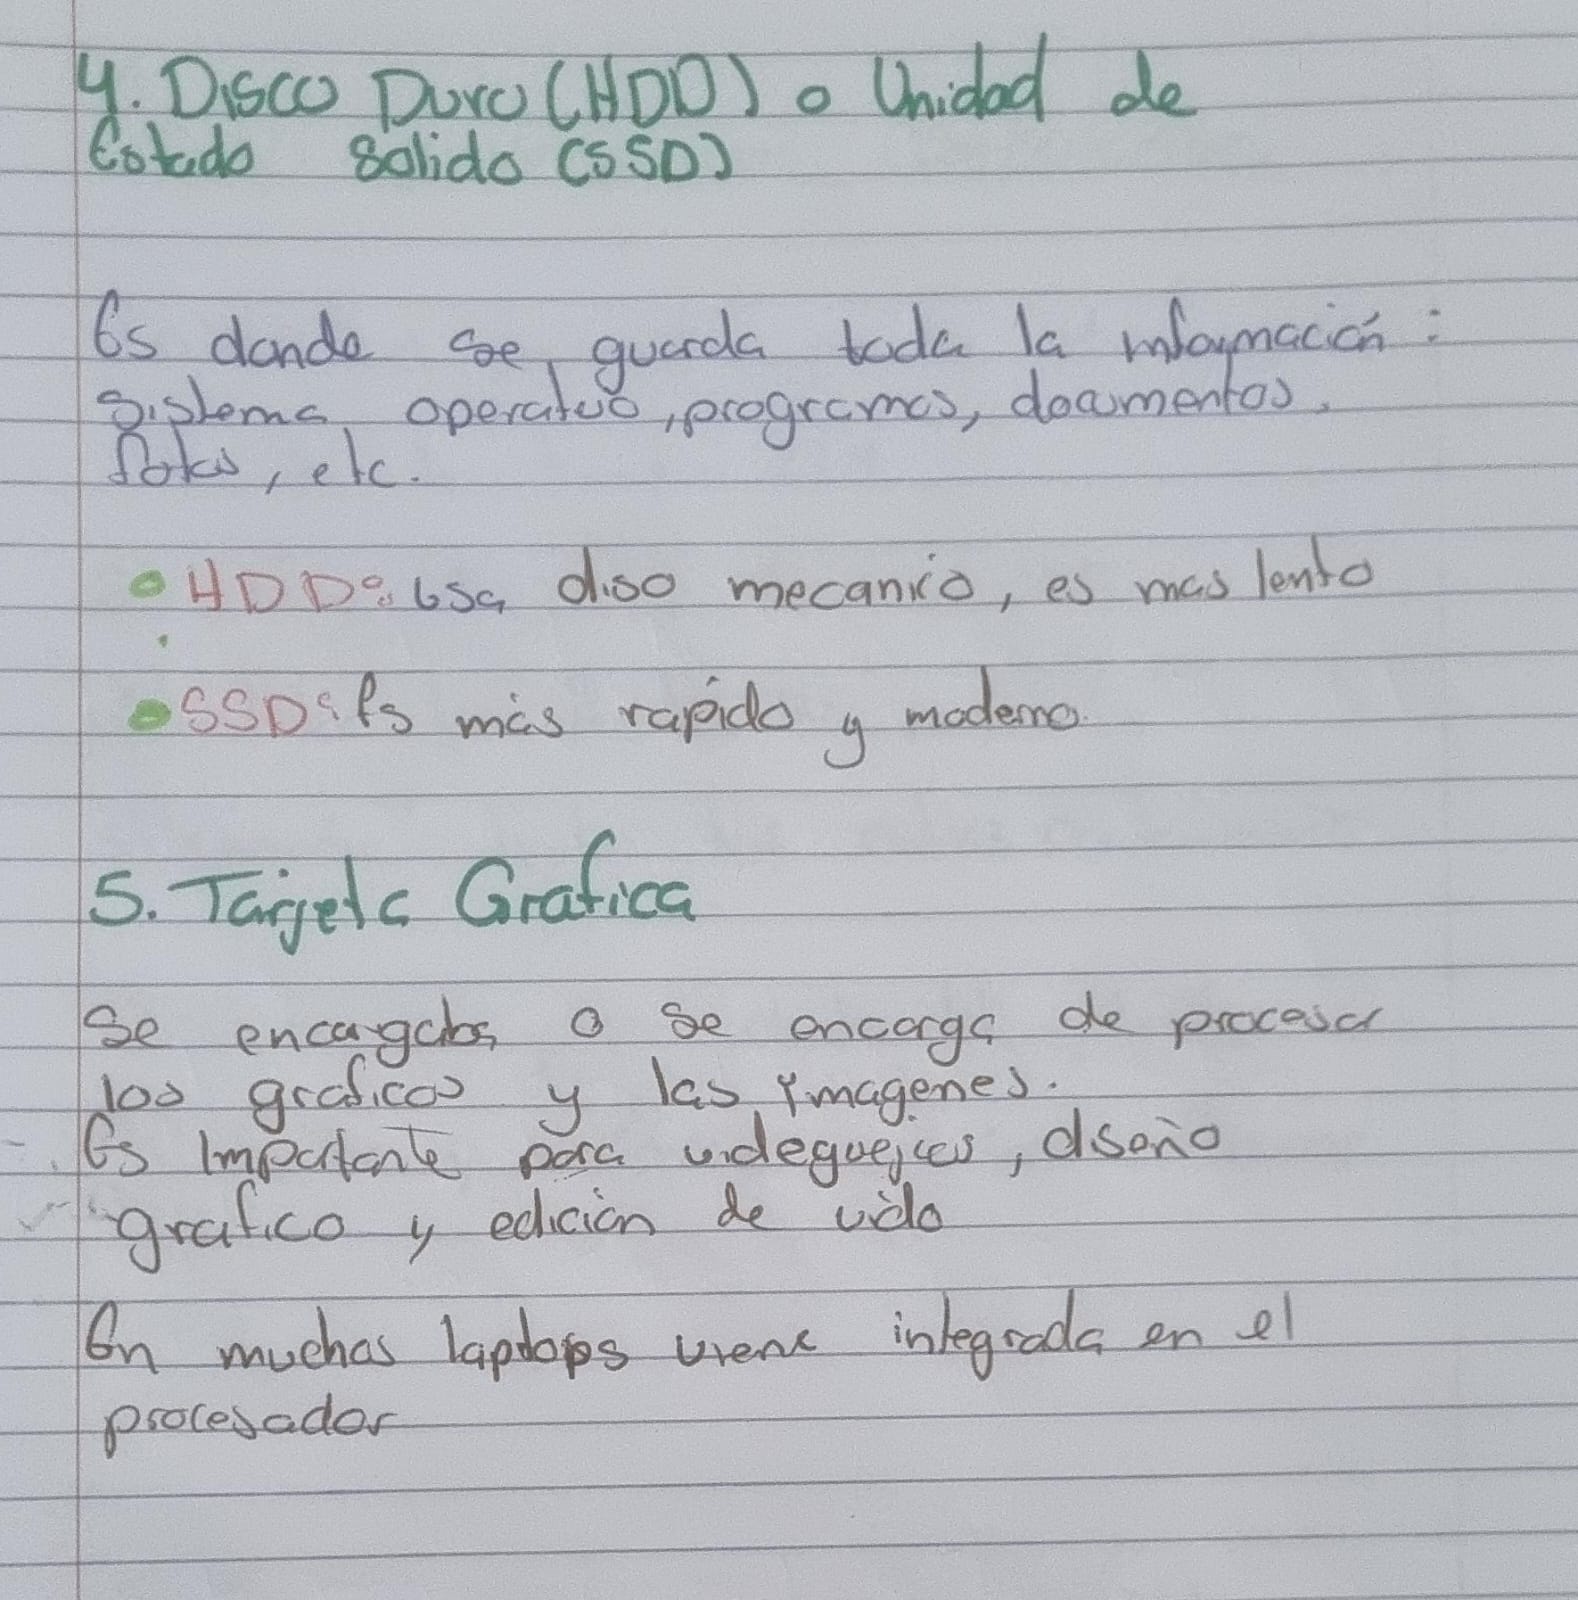 4. Disco Duro (HDD) o Unidad de
Estado Solido (SSD)
Es donde se guarda toda la información :
Sistema operativo, programas, documentos,
fotos, etc.
• HDD: Usa diso mecanico, es mas lento
• SSD: Es más rapido y moderno.
5. Tarjeta Grafica
Se encargabs o se encarga de procesar
los graficos y las imagenes.
Es Importante para videguejces, diseño
grafico y edición de vido
En muchas laptops viene integrada en el
procesador